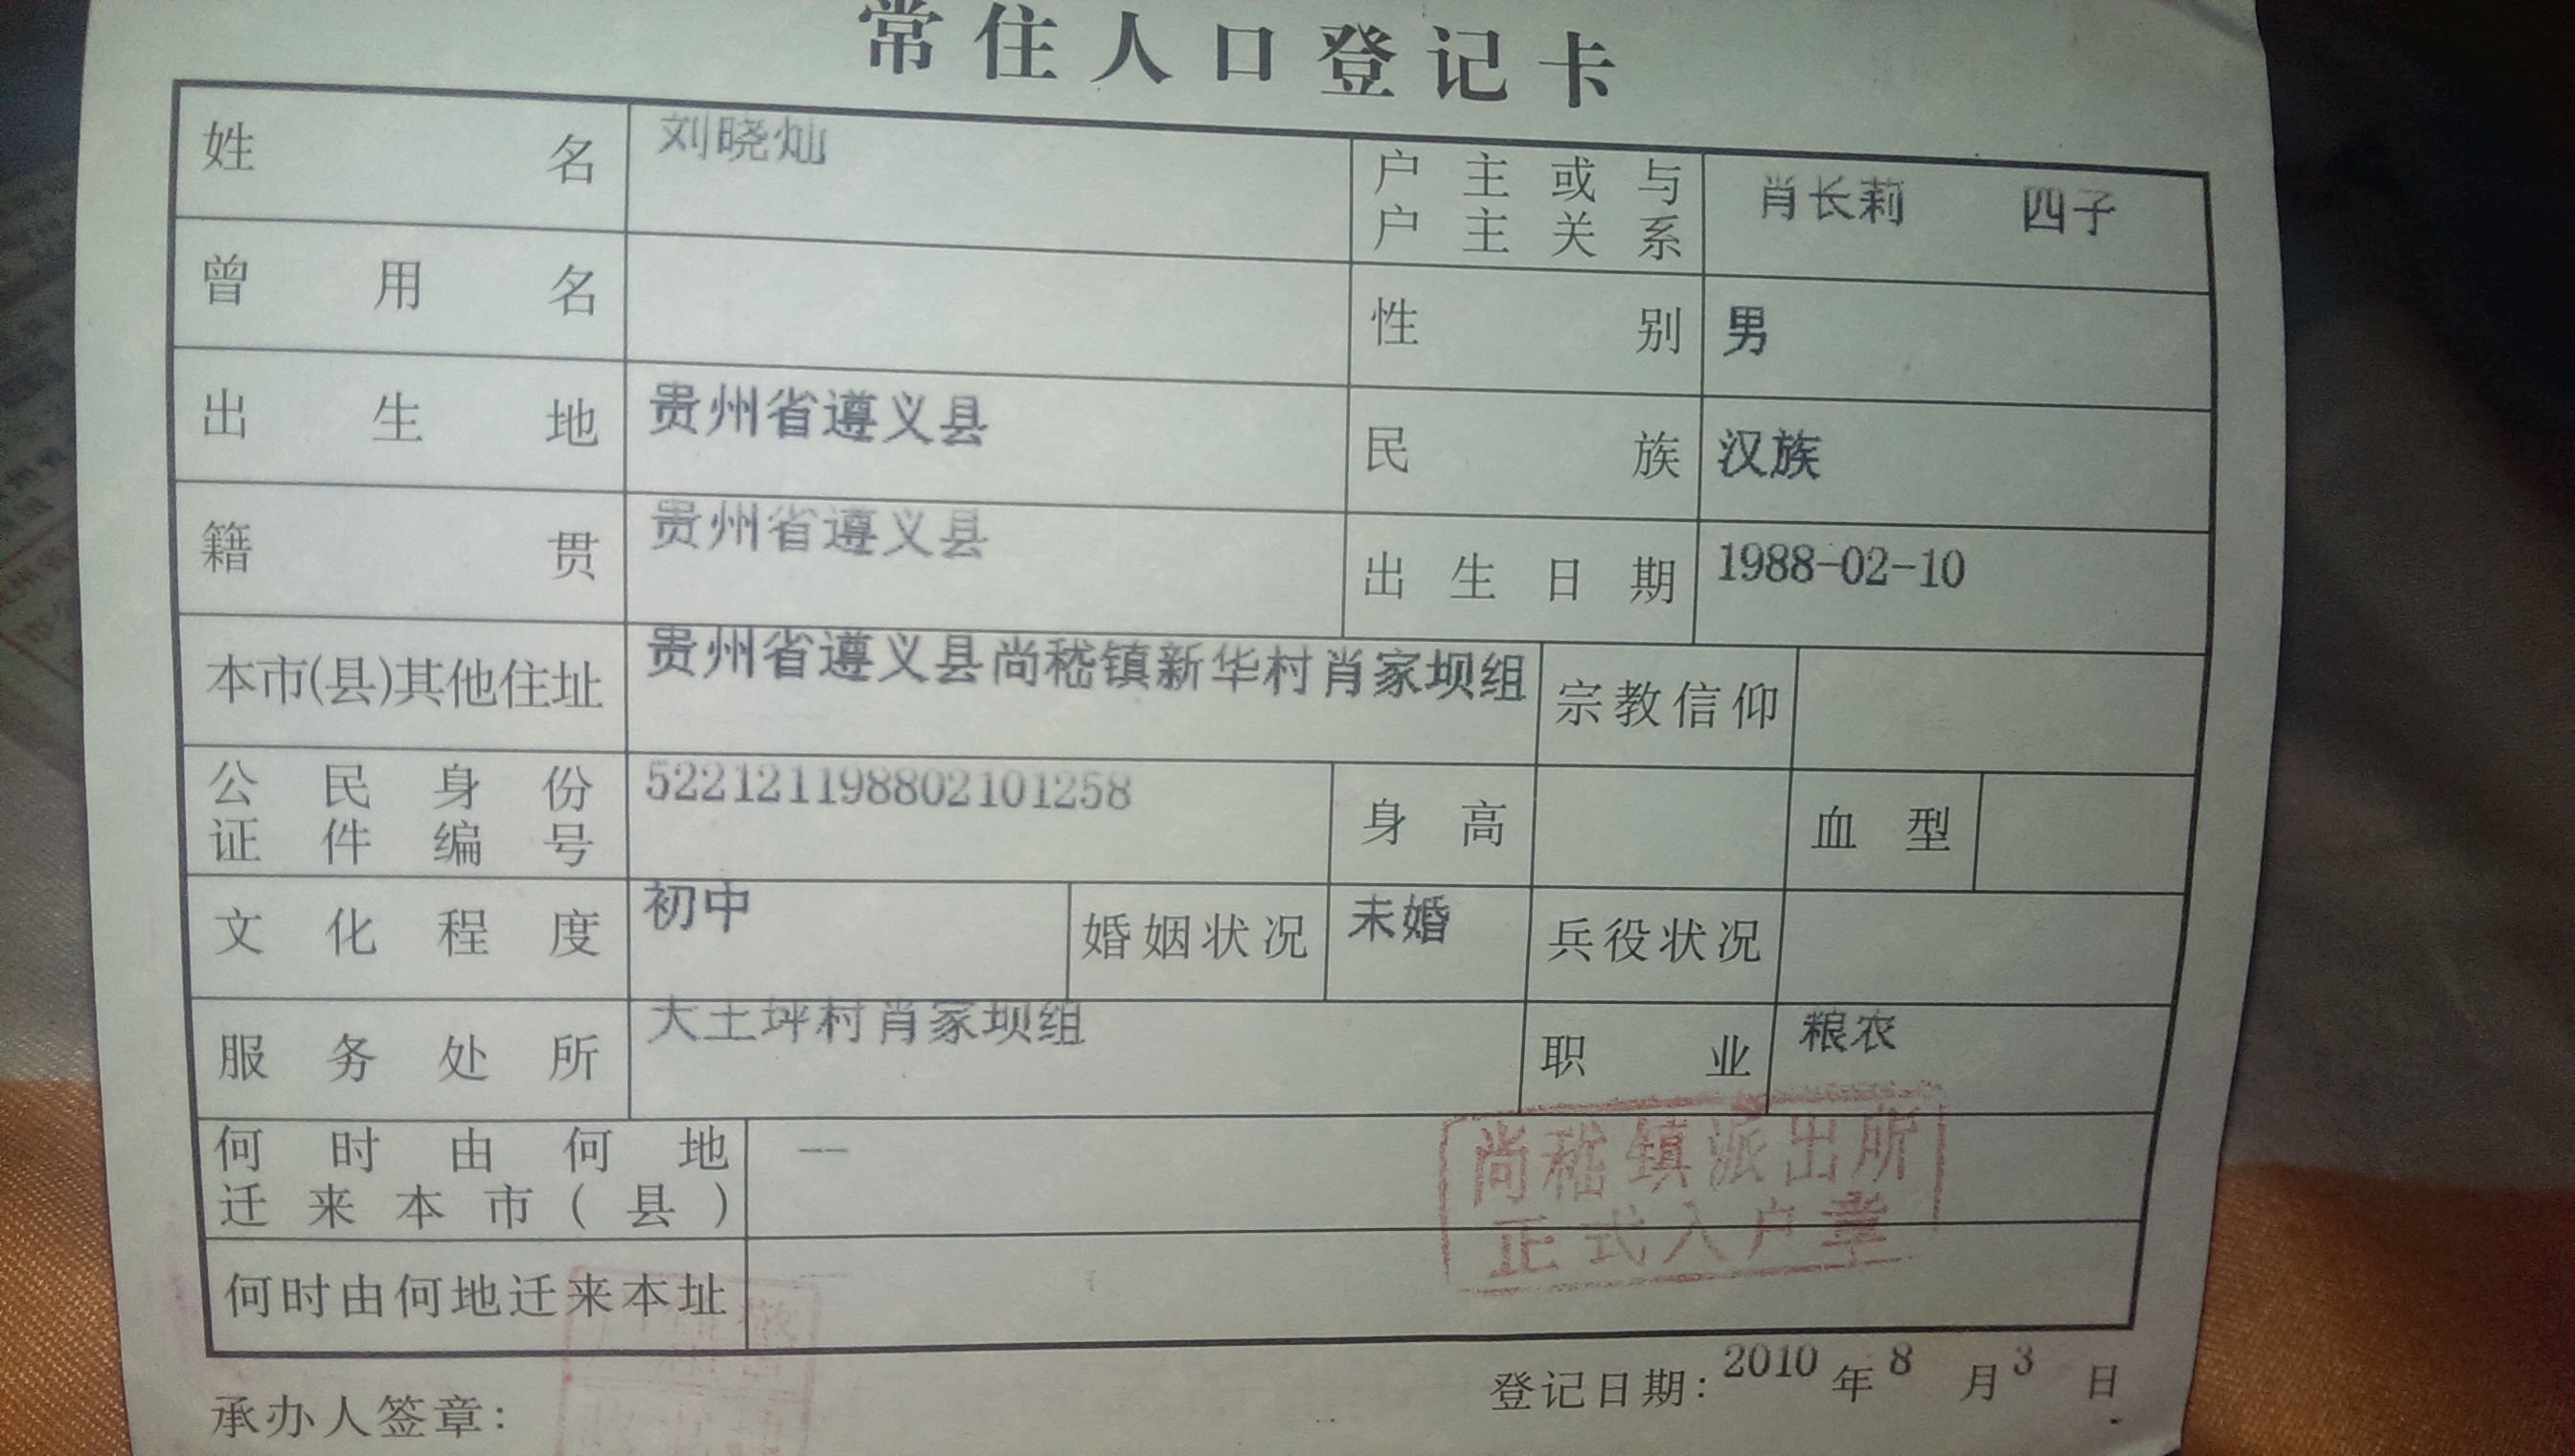 常住人口登记卡
姓名 刘晓灿 户主或与户主关系 肖长莉 四子
曾用名 性别 男
出生地 贵州省遵义县 民族 汉族
籍贯 贵州省遵义县 出生日期 1988-02-10
本市(县)其他住址 贵州省遵义县尚嵇镇新华村肖家坝组 宗教信仰
公民身份证件编号 522121198802101258 身高 血型
文化程度 初中 婚姻状况 未婚 兵役状况
服务处所 大土坪村肖家坝组 职业 粮农
何时由何地迁来本市(县) —
尚嵇镇派出所
正式入户章
何时由何地迁来本址
登记日期: 2010 年 8 月 3 日
承办人签章: